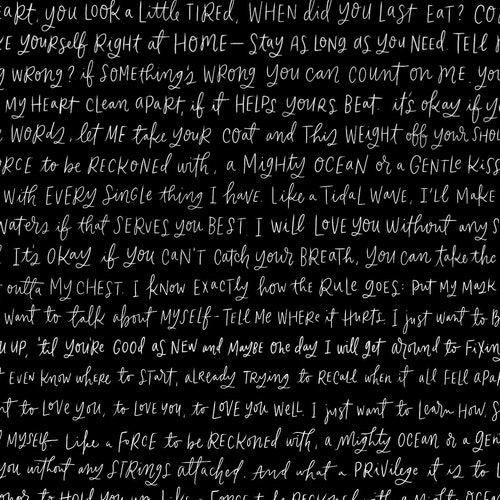 eart, you look a little tired, when did you last eat? Co
ke yourself right at home— stay as long as you need. Tell m
g wrong? if something's wrong you can count on me. you
my heart clean apart, if it helps yours beat. it's okay if y
words, let me take your coat and this weight off your shou
orce to be reckoned with, a mighty ocean or a gentle kiss
with every single thing I have. Like a tidal wave, I'll make
waters if that serves you best. I will love you without any s
It's okay if you can't catch your breath, you can take the
outta my chest. I know exactly how the rule goes: put my mask
want to talk about myself- tell me where it hurts. I just want to b
u up, 'til you're good as new and maybe one day I will get around to fixin
t even know where to start, already trying to recall when it all fell apa
nt to love you, to love you, to love you well. I just want to learn how, s
myself— Like a force to be reckoned with, a mighty ocean or a gen
you without any strings attached. And what a privilege it is to
to hold you up. Like a force to be reckoned with, a mighty ocean